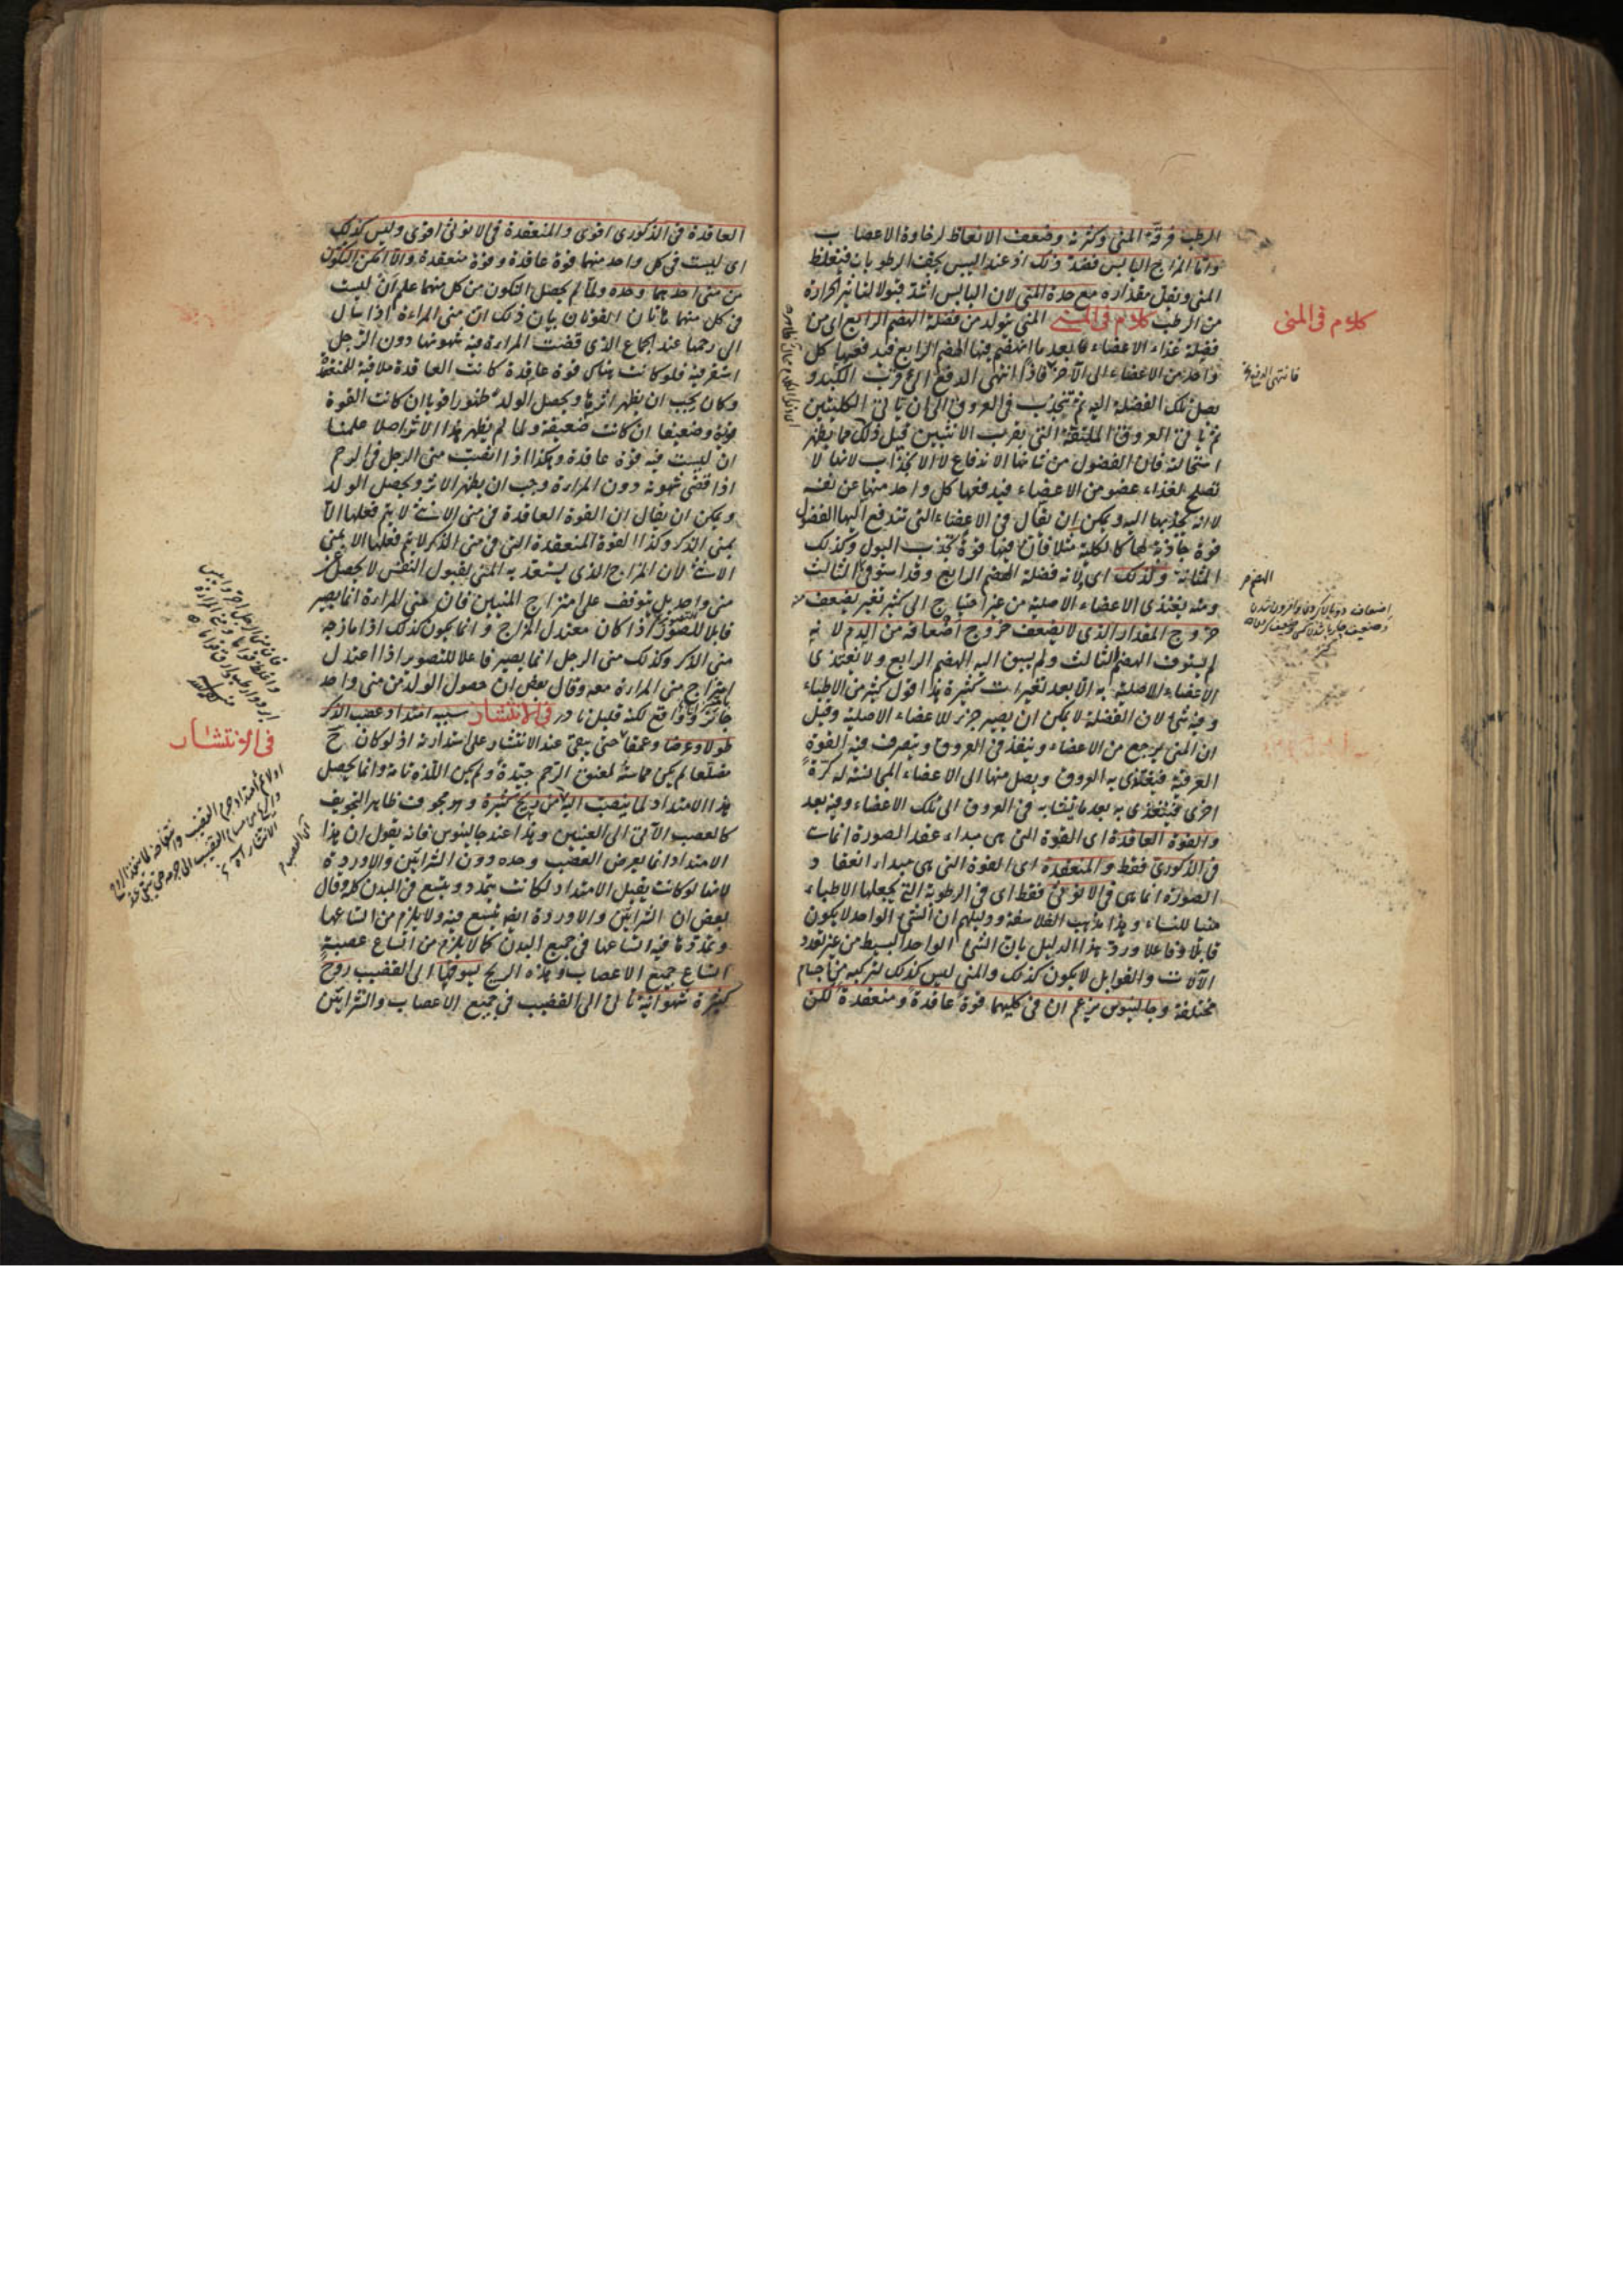 الرطب فرقة المنى وكثرته وضعف الانعاظ لرخاوة الاعصاب
واما المزاج اليابس فضد ذلك اذ عند اليبس يجف الرطوبات فيغلظ
المنى ويقل مقداره مع حدة المنى لان اليابس اشد قبولا لتاثير الحرارة
من الرطب كلام فى المنى المنى يتولد من فضلة الهضم الرابع اى من
فضلة غذاء الاعضاء بعد ما انهضم فيها الهضم الرابع فيدفعها كل
واحد من الاعضاء الى الآخر فاذا انتهى الدفع الى قرب الكبد و
يصل تلك الفضلة اليه ثم تنجذب فى العروق الى ان ياتى الكليتين
ثم ياتى العروق الملتفة التى بقرب الانثيين قيل ذلك مما يظهر
استحالته فان الفضول من شانها الاندفاع لا الانجذاب لانها لا
تصلح لغذاء عضو من الاعضاء فيدفعها كل واحد منها عن نفسه
لا انه يجذبها اليه ويمكن ان يقال فى الاعضاء التى تندفع اليها الفضول
قوة جاذبة لها كالكلية مثلا فان فيها قوة تجذب البول وكذلك
المثانة ولذلك اى لانه فضلة الهضم الرابع وقد استوفى الثالث
ومنه يغتذى الاعضاء الاصلية من غير احتياج الى كثير تغير يضعف من
خروج المقدار الذى لا يضعف خروج اضعافه من الدم لانه
لم يستوف الهضم الثالث ولم يسبق اليه الهضم الرابع ولا تغتذى
الاعضاء الاصلية به الا بعد تغيرات كثيرة هذا قول كثير من الاطباء
وفيه شئ لان الفضلة لا يمكن ان يصير جزء للاعضاء الاصلية وقيل
ان المنى يرجع من الاعضاء وينفذ فى العروق ويتصرف فيه القوة
العرقية فيغتذى به العروق ويصل منها الى الاعضاء المجانسة له كرة
اخرى فيغتذى به بعد ما يتشابه فى العروق الى تلك الاعضاء وفيه بعد
والقوة العاقدة اى القوة التى هى مبداء عقد الصورة انما هى
فى الذكورى فقط والمنعقدة اى القوة التى هى مبداء انعقاد
الصورة انما هى فى الانوثى فقط اى فى الرطوبة التى يجعلها الاطباء
منيا للنساء وهذا مذهب الفلاسفة ودليلهم ان الشئ الواحد لا يكون
قابلا وفاعلا ورد هذا الدليل بان الشئ الواحد البسيط من غير تعدد
الآلات والقوابل لا يكون كذلك والمنى ليس كذلك لتركبه من اجسام
مختلفة وجالينوس يزعم ان فى كليهما قوة عاقدة ومنعقدة لكن
كلام فى المنى
العاقدة فى الذكورى اقوى والمنعقدة فى الانوثى اقوى وليس كذلك
اى ليست فى كل واحد منهما قوة عاقدة وقوة منعقدة والا امكن التكون
من منى احدهما وحده ولما لم يحصل التكون من كل منهما علم ان ليست
فى كل منهما هاتان القوتان بيان ذلك ان منى المراءة اذا سال
الى رحمها عند الجماع الذى قضت المراءة فيه شهوتها دون الرجل
استقر فيه فلو كانت هناك قوة عاقدة كانت العاقدة ملاقية للمنعقدة
وكان يجب ان يظهر اثرها ويحصل الولد ظهورا قويا ان كانت القوة
قوية وضعيفا ان كانت ضعيفة ولما لم يظهر هذا الاثر اصلا علمنا
ان ليست فيه قوة عاقدة وهكذا اذا انصبت منى الرجل فى الرحم
اذا قضى شهوته دون المراءة وجب ان يظهر الاثر ويحصل الولد
ويمكن ان يقال ان القوة العاقدة فى منى الانثى لا يتم فعلها الا
بمنى الذكر وكذا القوة المنعقدة التى فى منى الذكر لا يتم فعلها الا بمنى
الانثى لان المزاج الذى يستعد به المنى لقبول النفس لا يحصل عن
منى واحد بل يتوقف على امتزاج المنيين فان منى المراءة انما يصير
قابلا للتصور اذا كان معتدل المزاج وانما يكون كذلك اذا مازجه
منى الذكر وكذلك منى الرجل انما يصير فاعلا للتصوير اذا اعتدل
بامتزاج منى المراءة معه وقال بعض ان حصول الولد من منى واحد
جائز وواقع لكنه قليل نادر فى الانتشار سببه امتداد عصب الذكر
طولا وعرضا وعمقا حتى يبقى عند الانتشار على استدارته اذ لو كان ح
مضلعا لم يكن مماسة لعنق الرحم جيدة ولم يكن اللذة تامة وانما يحصل
هذا الامتداد لما ينصب اليه من ريح كثيرة وهو مجوف ظاهر التجويف
كالعصب الآتى الى العينين وهذا عند جالينوس فانه يقول ان هذا
الامتداد انما يعرض العصب وحده دون الشرائين والاوردة
لانها لو كانت يقبل الامتداد لكانت يتمدد ويتسع فى البدن كله وقال
بعض ان الشرائين والاوردة ايضا يتسع فيه ولا يلزم من اتساعها
وتمددها فيه اتساعها فى جميع البدن كما لا يلزم من اتساع عصبة
اتساع جميع الاعصاب وهذه الريح يسوقها الى القضيب روح
كثيرة شهوانية تاتى الى القضيب فى جميع الاعصاب والشرائين
فى الانتشار